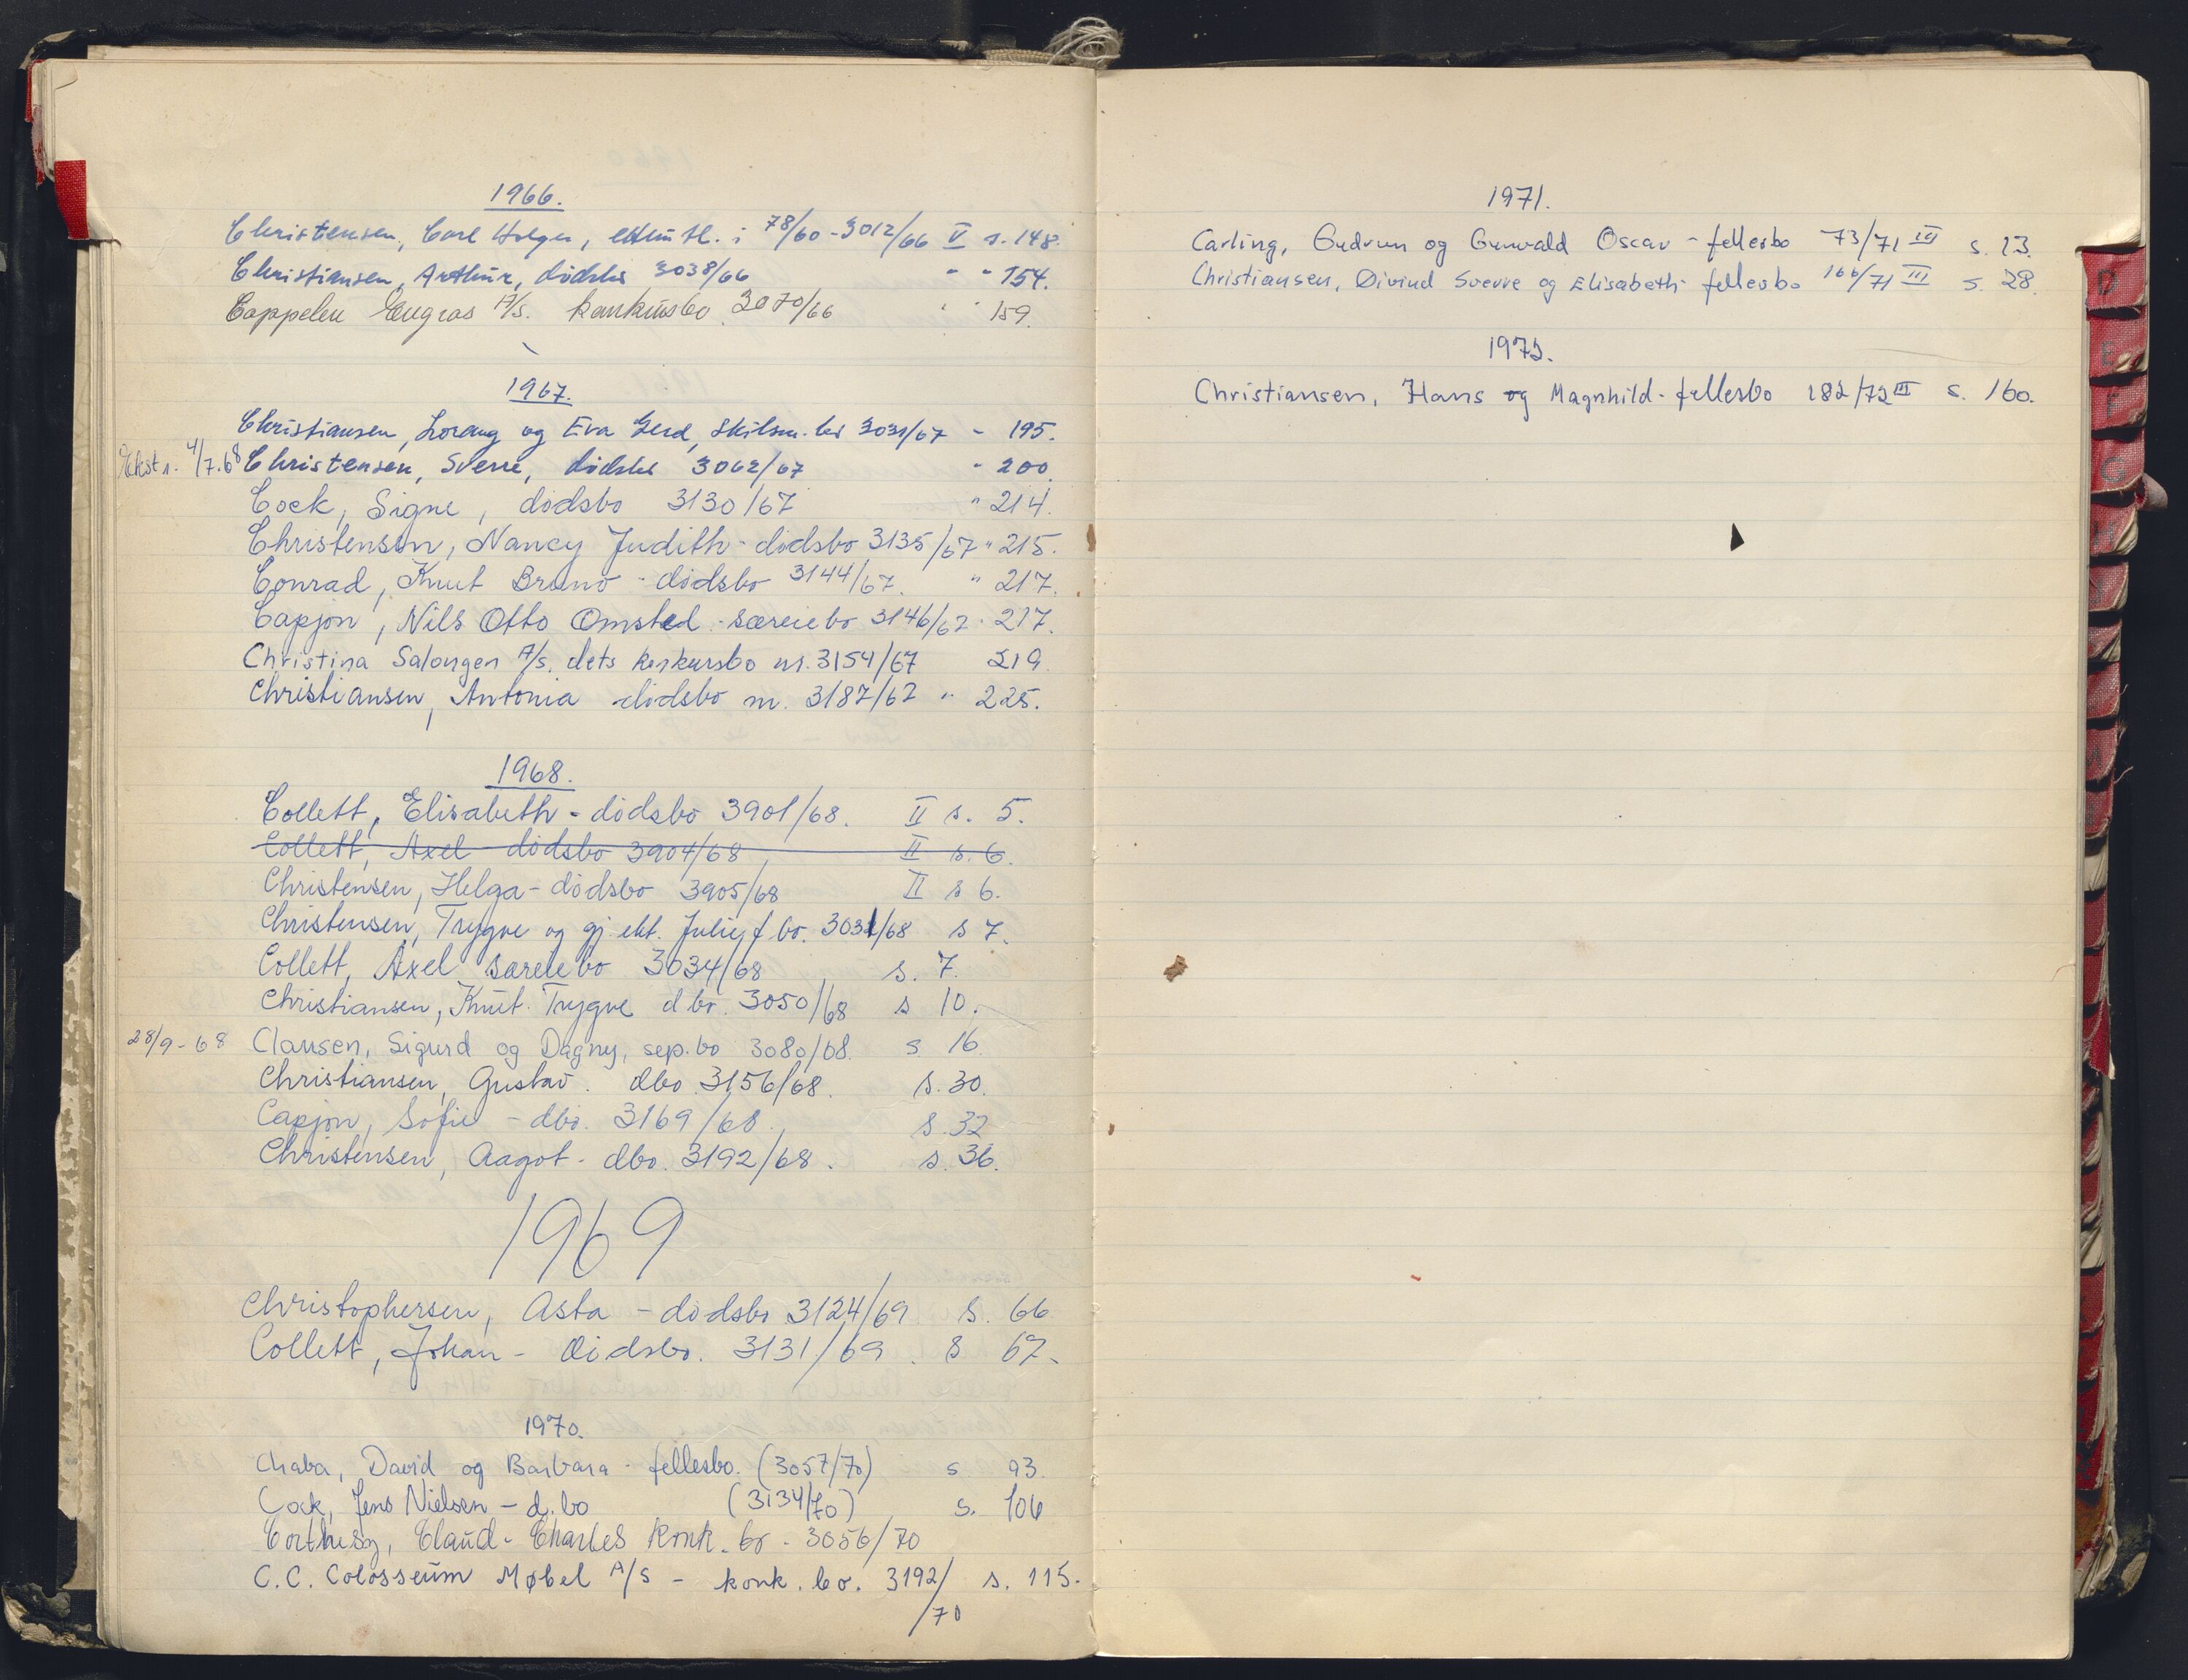 1966.
Christensen, Carl Holger, i 78/60 - 3012/66 V s. 148.
Christiansen, Arthur, dødsbo 3038/66 " " 154.
Cappelen Engros A/s. konkursbo 3070/66 " " 159.
1967.
Christiansen, Lorang og Eva Gerd, skilsm. bo 3031/67 - 195.
Ekstr. 4/7.68 Christensen, Sverre, dødsbo 3062/67 - 200.
Cock, Signe, dødsbo 3130/67 " 214.
Christensen, Nancy Judith - dødsbo 3135/67 " 215.
Conrad, Knut Bruno - dødsbo 3144/67. " 217.
Capjon, Nils Otto Omsted - særeiebo 3146/67 - 217.
Christina Salongen A/s. dets konkursbo nr. 3154/67 219.
Christiansen, Antonia dødsbo nr. 3187/67 " 225.
1968.
Collett, Elisabeth - dødsbo 3901/68. II s. 5.
Collett, Axel dødsbo 3904/68, II s. 6.
Christensen, Helga - dødsbo 3905/68 II s 6.
Christensen, Trygve og gj. ekt. Julie, f. bo. 3031/68 s 7.
Collett, Axel særeiebo 3034/68 s. 7.
Christiansen, Knut Trygve d bo. 3050/68 s 10.
28/9-68 Clausen, Sigurd og Dagny, sep.bo 3080/68. s 16.
Christiansen, Gustav. dbo. 3156/68. s. 30.
Capjon, Sofie - dbo. 3169/68. s. 32
Christensen, Aagot - dbo. 3192/68. s. 36.
1969
Christophersen, Asta - dødsbo 3124/69 s. 66
Collett, Johan - Dødsbo. 3131/69. s 67.
1970.
Chaba, David og Barbara - fellesbo. (3057/70) s 93.
Cock, Jens Nielsen - d. bo (3134/70) s. 106
Corthesy, Claud-Charles konk. bo - 3056/70
C.C. Colosseum Møbel A/S - konk. bo. 3192/ s. 115.
/70
1971.
Carling, Gudrun og Gunvald Oscar - fellesbo 73/71 III s. 13.
Christiansen, Øivind Sverre og Elisabeth - fellesbo 166/71 III s. 28.
1973.
Christiansen, Hans og Magnhild - fellesbo 182/72 III s. 160.
D
E
F
G